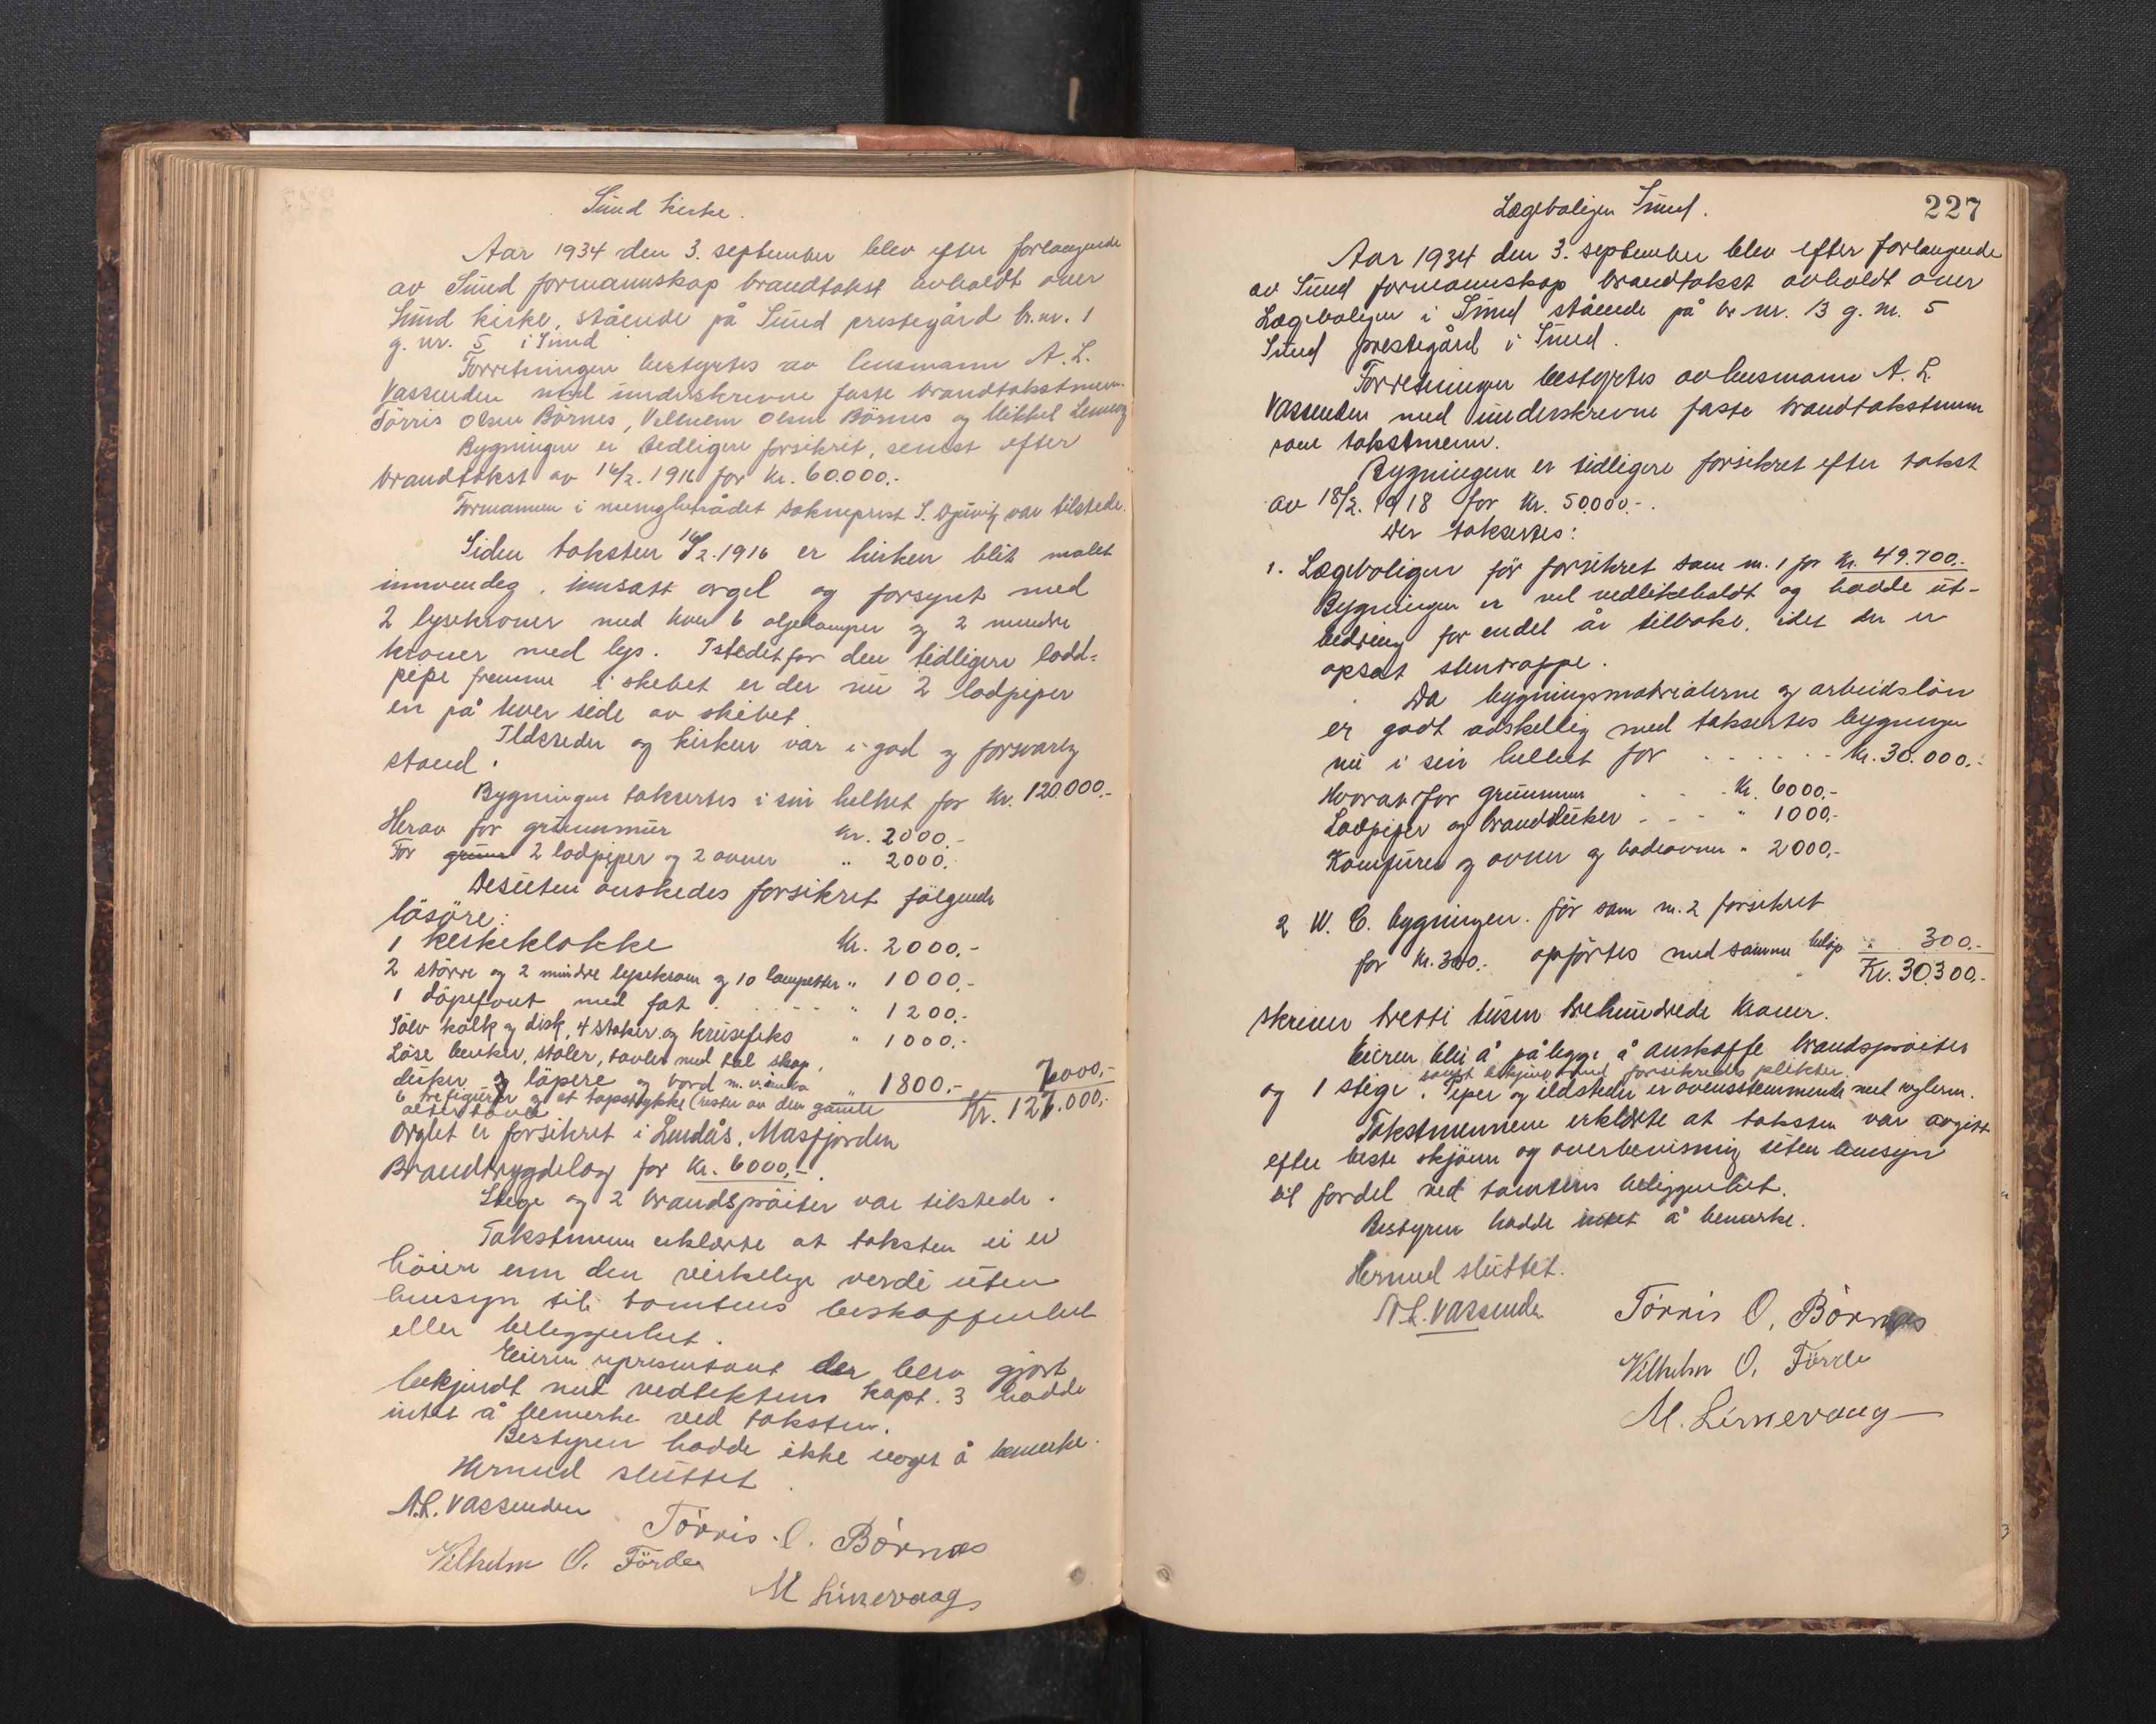 Sund kirke.
Aar 1934 den 3. september blev efter forlangende
av Sund formannskap brandtakst avholdt over
Sund kirke, stående på Sund prestegård br.nr. 1
g. nr. 5 i Sund
Forretningen bestyrtes av lensmann A. L.
Vassenden med underskrevne faste brandtakstmenn
Törris Olsen Börnes, Vilhelm Olsen Börnes og Mikkel
Bygningen er tidligere forsikret, senest efter
brandtakst av 16/2. 1916 for Kr. 60.000.-
Formannen i menighetsrådet sokneprest S. var tilstede.
Siden taksten 16/2.1916 er kirken blit malet
innvendig, innsatt orgel og forsynt med
2 lysekroner med hver 6 oljelamper og 2 mindre
kroner med lys. Istedetfor den tidligere lodd-
pipe fremme i skibet er der nu 2 lodpiper
en på hver side av skibet.
Ildsteder og kirken var i god og forsvarlig
stand.
Bygningen taksertes i sin helhet for Kr. 120.000.-
Herav for grunnmur Kr. 2000.-
For grunn 2 lodpiper og 2 ovner " 2000.-
Desuten önskedes forsikret fölgende
lösöre:
1 kirkeklokke Kr. 2000.-
2 större og 2 mindre lysekroner og 10 lampetter " 1000.-
1 döpefont med fat . . . . . " 1200.-
Sölv kalk og disk, 4 staker og krusefiks " 1000.-
Löse benker, stoler, tavler med tal skap,
duker og löpere og bord m. v. " 1800.- 7000.-
6 trefigurer og et topstykke (rester av den gamle Kr. 127.000.-
altertavle
Orglet er forsikret i Lindås, Masfjorden
Brandtrygdelag for Kr. 6000.-
Stige og 2 brandspröiter var tilstede.
Takstmenn erklærte at taksten ei er
höiere enn den virkelige verdi uten
hensyn til tomtens beskaffenhet
eller beliggenhet.
Eieren representant der blev gjort
bekjendt med vedtektens kapt. 3 hadde
intet å bemerke ved taksten.
Bestyren hadde ikke noget å bemerke.
Hermed sluttet
A.L. Vassenden
Törris O. Börnæs
Vilhelm O. Förde
M Linnevaag
Lægeboligen Sund.
227
Aar 1934 den 3. september blev efter forlangende
av Sund formannskap brandtakst avholdt over
Lægeboligen i Sund stående på br. nr. 13 g. nr. 5
Sund prestegård i Sund.
Forretningen bestyrtes av lensmann A. L.
Vassenden med underskrevne faste brandtakstmenn
som takstmenn.
Bygningen er tidligere forsikret efter takst
av 18/2. 1918 for Kr. 50.000.-
Der taksertes:
1. Lægeboligen för forsikret som nr. 1 for Kr. 49.700.-
Bygningen er vel vedlikeholdt og hadde ut-
bedring for endel år tilbake, idet der er
opsat stentrappe.
Da bygningsmaterialerne og arbeidslön
er godt adskellig ned taksertes bygningen
nu i sin helhet for . . . . . Kr. 30.000.-
Hvorav for grunnmur - - Kr. 6000.-
Lodpiper og brandduker - - - " 1000.-
Komfurer og ovner og badeovner " 2000.-
2 W. C. bygningen. för som nr. 2 forsikret
for Kr. 300.- opförtes med samme belöp " 300.-
Kr. 30.300.-
skriver tretti tusen trehundrede kroner.
Eieren blir å pålegge å anskaffe brandspröiter
samt bekjent med forsikredes plikter.
og 1 stige. Piper og ildsteder er ovensstemmende med reglerne.
Takstmennene erklærte at taksten var avgitt
efter beste skjönn og overbevisning uten hensyn
til fordel ved tomtens beliggenhet.
Bestyren hadde intet å bemerke.
Hermed sluttet.
A.L. Vassenden
Törris O. Börnæs
Vilhelm O. Förde
M. Linnevaag